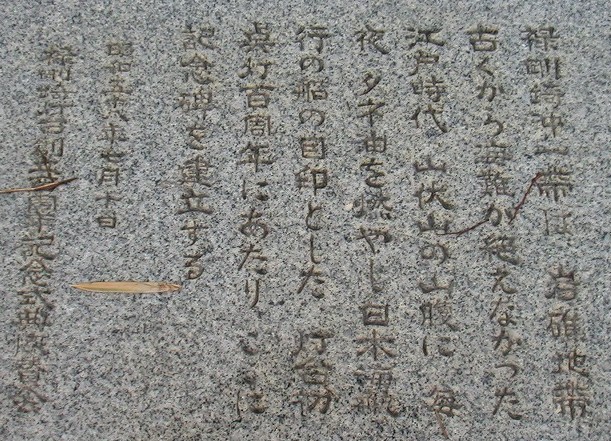 禄剛崎沖一帯は 岩礁地帯
古くから海難が絶えなかった
江戸時代 山伏山の山腹に 毎
夜 タネ油を燃やし日本海航
行の船の目印とした 灯台初
点灯百周年にあたり ここに
記念碑を建立する
昭和五十八年七月十日
禄剛埼灯台創立百周年記念式典協賛会